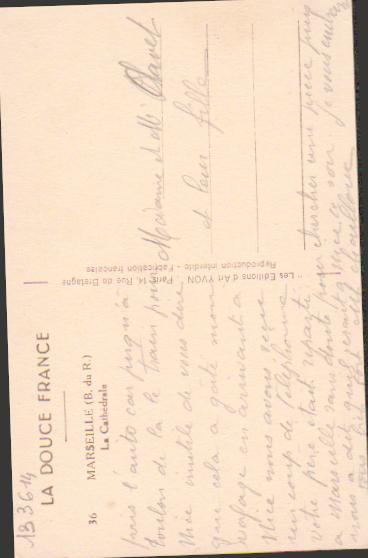 183614
LA DOUCE FRANCE
36 MARSEILLE (B. du R.)
La Cathédrale
" Les Editions d'Art YVON " Paris-14, Rue de Bretagne
Reproduction interdite - Fabrication française
Madame et Mr
et leur fille
puis l'autocar jusqu'à
Toulon de là le train pour
Nice inutile de vous dire
que cela a gâté mon
voyage en arrivant à
Nice nous avons reçu
un coup de téléphone
votre père était reparti
à Marseille sans doute pour chercher une pièce puis
nous a dit qu'il serait à Nice ce soir je vous